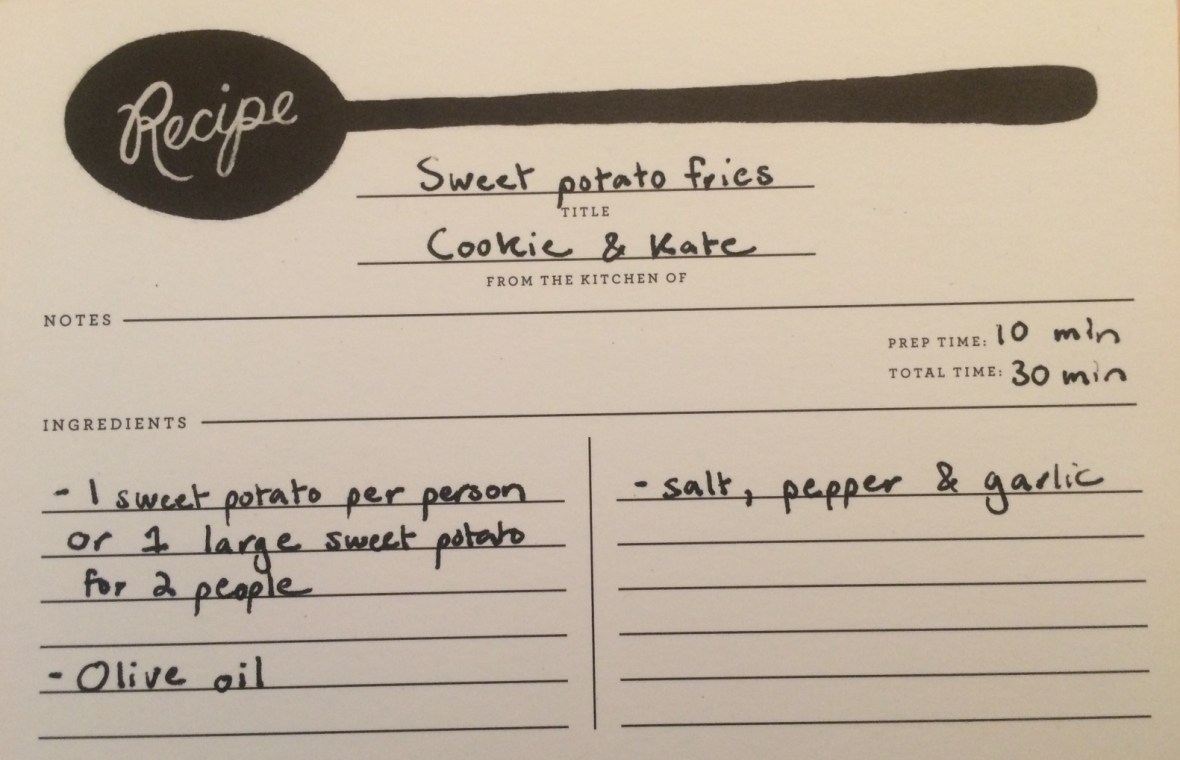 Recipe
Sweet potato fries
TITLE
Cookie & Kate
FROM THE KITCHEN OF
NOTES
PREP TIME: 10 min
TOTAL TIME: 30 min
INGREDIENTS
- 1 sweet potato per person
or 1 large sweet potato
for 2 people
- Olive oil
- salt, pepper & garlic